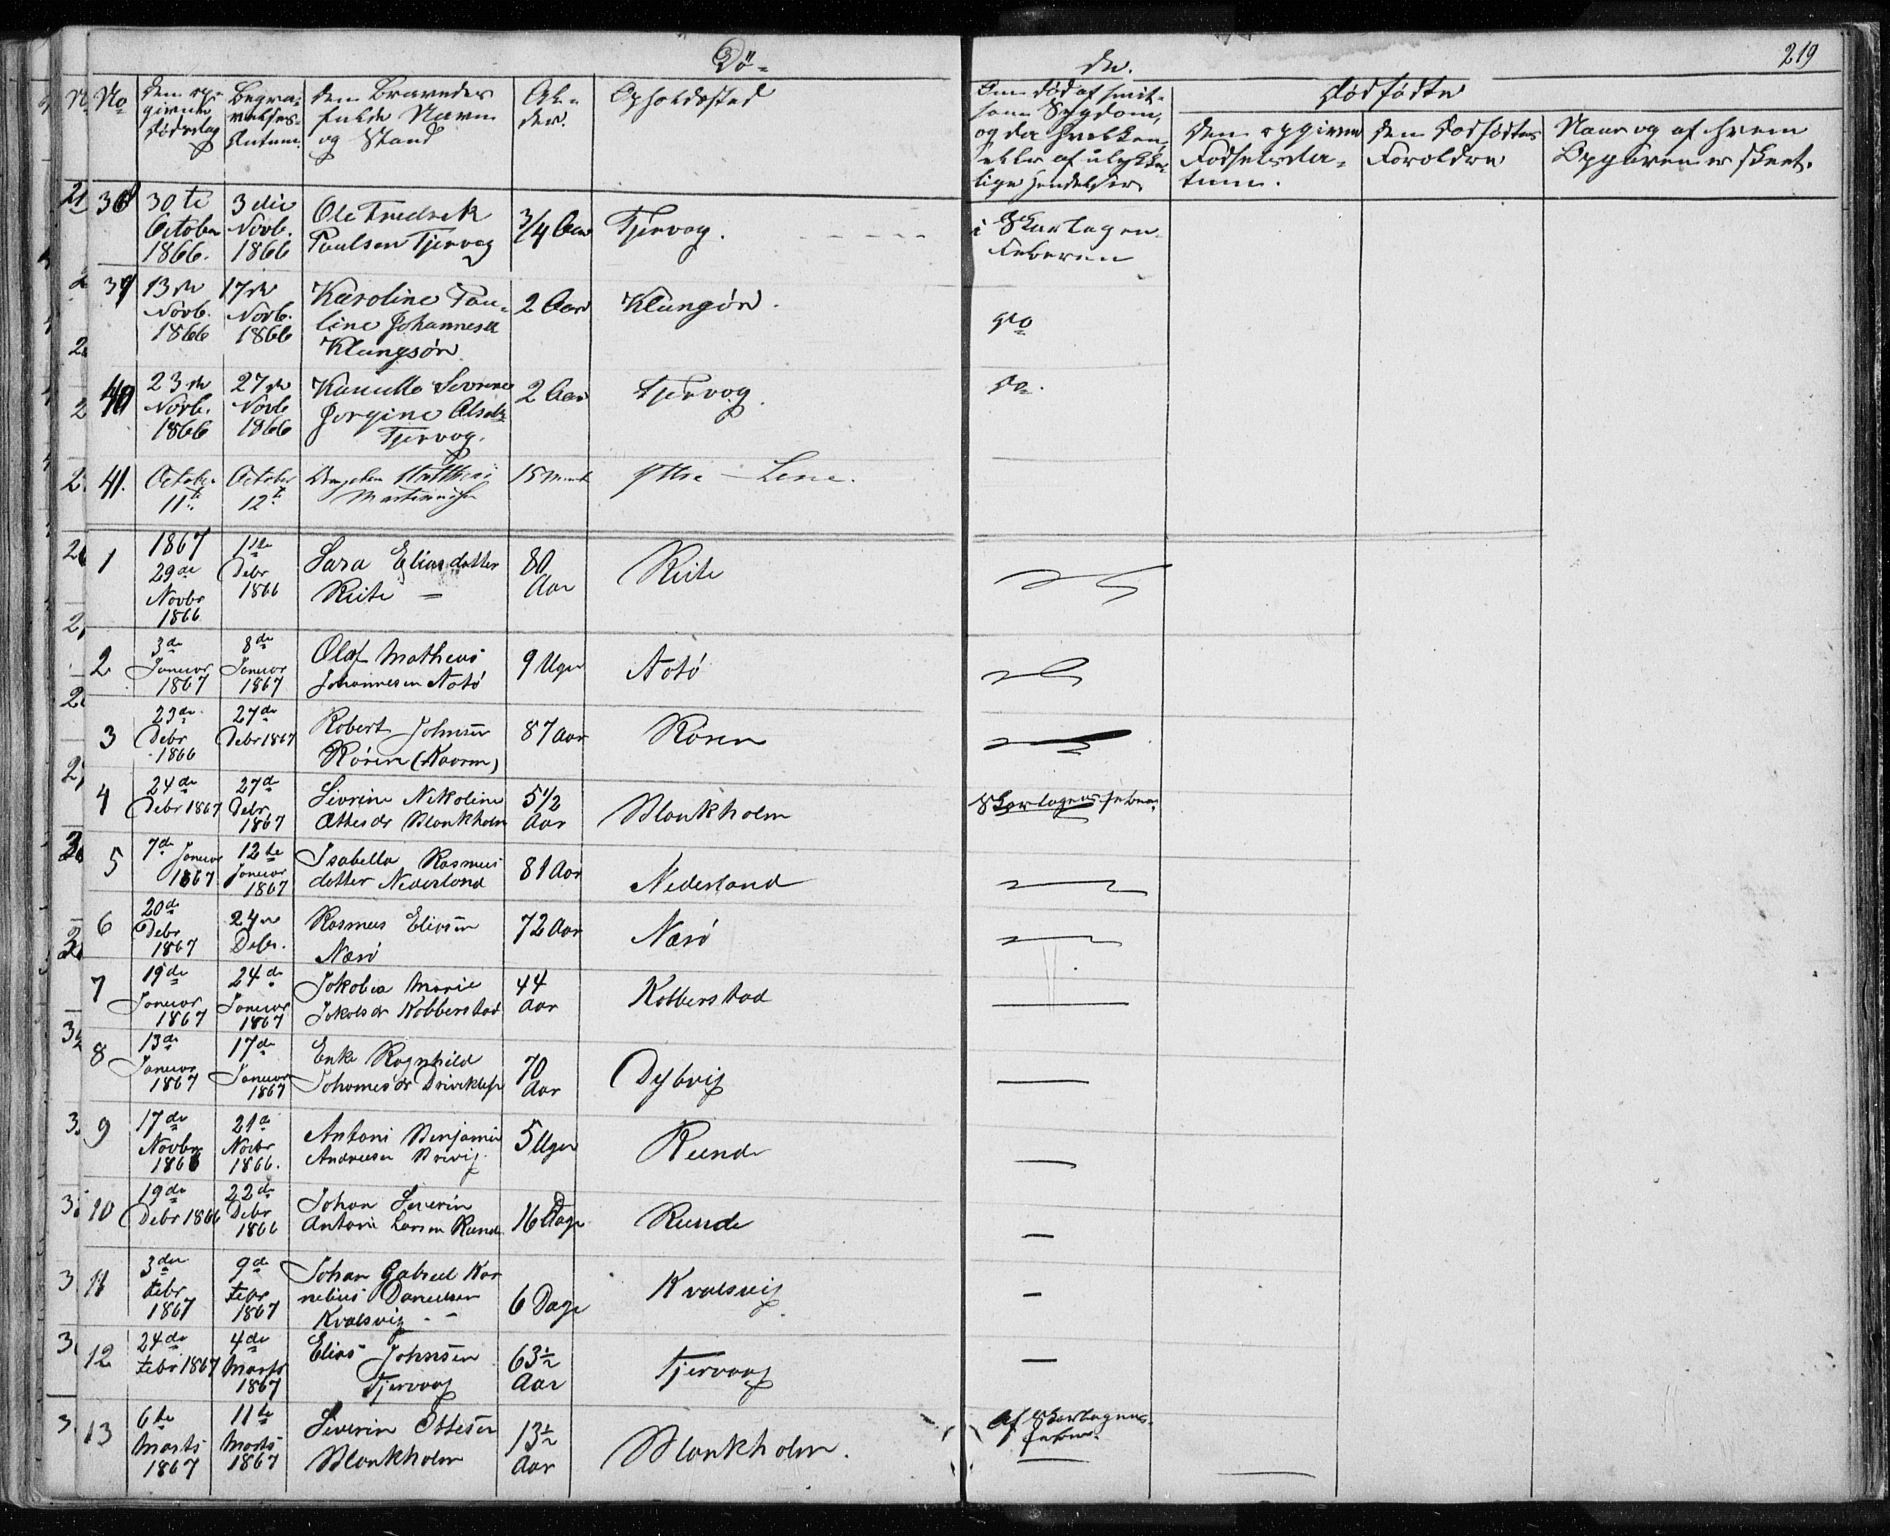 Dø-
de.
219
No
Den op-
givne
Dødsdag
Begra-
velses-
Datum.
Den Begravedes
fulde Navn
og Stand
Al-
der.
Opholdssted
Om død af smit-
som Sygdom,
og da hvilken,
eller af ulykke-
lige Hændelser
Dødfødte
Den opgivne
Fødselsda-
tum.
Den Dødfødtes
Forældre
Naar og af hvem
Opgaven er skeet.
30te
October
1866.
3die
Novb.
1866
Ole Fredrik
Paulsen Tjervaag
3/4 Aar
Tjervog.
i Skarlagen
Feberen
39
13de
Novb.
1866
17de
Novb.
1866
Karoline Pau-
line Johannesd
Klungsør
2 Aar
Klungsør.
do
40
23de
Novb.
1866
27de
Novb
1866
Sevrine
Jorgine
Tjervog.
2 Aar
Tjervog.
do.
41.
October
11te
October
12te
Drengebarn
15 Minut
Yttre - Leine.
1
1867
29de
Novbr
1866
1ste
Debr
1866
Sara Eliasdatter
Reite -
80
Aar
Reite
2
3de
Januar
1867
8de
Januar
1867
Olaf Matheus
Johannesen Notø
9 Uger
Notø
3
23de
Debr
1866
27de
Debr 1867
Robert Johnsen
Røren (Kaarm)
87 Aar
Røren
4
24de
Debr 1867
27de
Debr
1867
Sivrine Nikoline
Ottesdr Blankholm
5 1/2
Aar
Blankholm
Skarlagensfeber
5
7de Januar
1867
12te
Januar
1867
Isabella Rasmus
datter Nederland
81 Aar
Nederland
6
20de
Debr
1867
24de
Debr.
Rasmus Eliasen
Nærø
72 Aar
Nærø
7
19de
Januar
1867
24de
Januar
1867
Jakobia Marie
Jakobsdr Kobberstad
44
Aar
Kobberstad
8
13de
Januar
1867
17de
Januar
1867
Enke Ragnhild
Johannesdr
70
Aar
Dybvig
9
17de
Novbr
1866
21de
Novbr
1866.
Antoni Benjamin
Andreesen
5 Uger
Runde
10
19de
Debr 1866
22de
Debr
1866
Johan Severin
Antoni Larsen Runde
16 Dage
Runde
11
3die
Febr
1867
9de
Febr
1867
Johan Gabriel Kor
nelius Danielsen
Kvalsvig -
6 Dage
Kvalsvig
12
24de
Febr 1867
4de
Marts
1867
Elias Johnsen
Tjervaag
63 1/2
Aar
Tjervaag
13
6te
Marts
1867
11te
Marts
1867
Severin Ottesen
Blankholm
13 1/2
Aar
Blankholm.
Af Skarlagens-
feber.